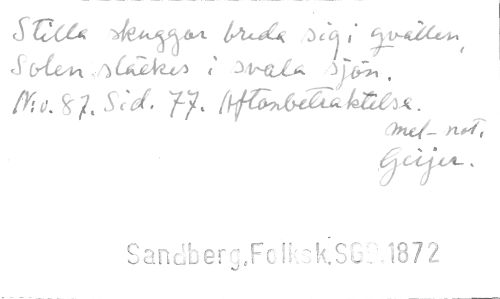 Stilla skuggor breda sig i qvällen,
Solen släckes i svala sjön.
N:o. 87. Sid. 77. Aftonbetraktelse.
mel- not.
Geijer.
Sandberg.Folksk.SGS.1872